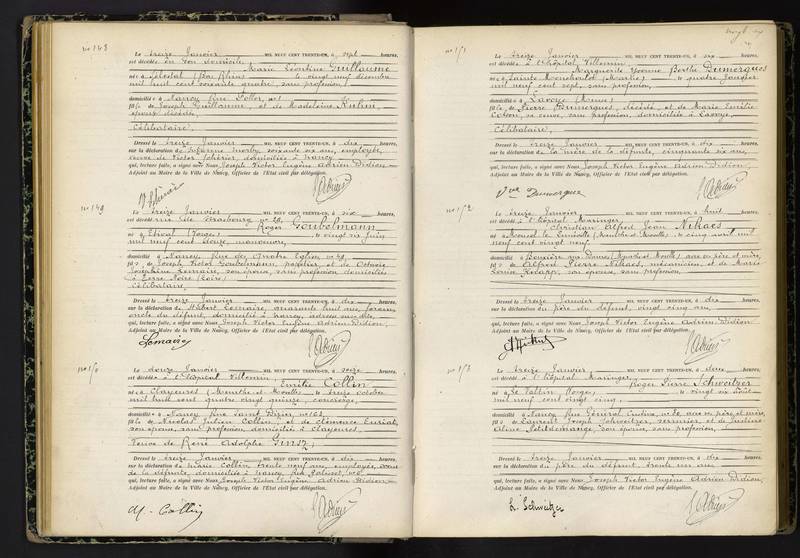 no 148
Le treize Janvier MIL NEUF CENT TRENTE-UN, à sept heures,
est décédée en son domicile,
Marie Léontine Guillaume
née à Sélestat (Bas Rhin) le vingt neuf décembre
mil huit cent soixante quatre, sans profession,
domiciliée à Nancy, Rue
fille de Joseph Guillaume, et de Madeleine Kuhn,
époux décédés,
Célibataire,
Dressé le treize Janvier MIL NEUF CENT TRENTE-UN, à dix heures,
sur la déclaration de Suzanne soixante six ans, employée,
veuve de Victor domiciliée à Nancy
qui, lecture faite, a signé avec Nous Joseph Victor Eugène Adrien Didion,
Adjoint au Maire de la Ville de Nancy, Officier de l'Etat civil par délégation.
no 149
Le treize Janvier MIL NEUF CENT TRENTE-UN, à six heures,
est décédé rue de Strasbourg no 29,
Roger Goubelmann
né à Etival (Vosges) le vingt six Juin
mil neuf cent douze, manoeuvre,
domicilié à Nancy, Rue des Quatre Eglises, no 49
fils de Joseph Victor Goubelmann, papetier, et de Octavie
Joséphine Lemaire, son épouse, sans profession, domiciliés
à
Célibataire,
Dressé le treize Janvier MIL NEUF CENT TRENTE-UN, à dix heures,
sur la déclaration de Hubert Lemaire, quarante huit ans, forain,
oncle du défunt, domicilié à Nancy, adresse susdite,
qui, lecture faite, a signé avec Nous Joseph Victor Eugène Adrien Didion,
Adjoint au Maire de la Ville de Nancy, Officier de l'Etat civil par délégation.
Lemaire
no 150
Le douze Janvier MIL NEUF CENT TRENTE-UN, à seize heures,
est décédée à l'hôpital Villemin,
Emilie Collin
née à Clayeures (Meurthe et Moselle) le treize octobre
mil huit cent quatre cinq quinze, concierge,
domiciliée à Nancy, Rue Saint Dizier no 162
fille de Nicolas Julien Collin, et de Clémence
son épouse, sans profession, domiciliés à Clayeures,
Veuve de René Adolphe
Dressé le treize Janvier MIL NEUF CENT TRENTE-UN, à dix heures,
sur la déclaration de Marie Collin, trente neuf ans, employée, soeur
de la défunte, domiciliée à Nancy, rue
qui, lecture faite, a signé avec Nous Joseph Victor Eugène Adrien Didion,
Adjoint au Maire de la Ville de Nancy, Officier de l'Etat civil par délégation.
M. Collin
no 151
Le treize Janvier MIL NEUF CENT TRENTE-UN, à six heures,
est décédée à l'hôpital Villemin,
Marguerite Yvonne Berthe Dumorques
née à Sainte Menehould (Marne) le quatre Janvier
mil neuf cent sept, sans profession,
domiciliée à Lavoye (Meuse)
fille de Pierre Dumorques, décédé, et de Marie Emilie
sa veuve, sans profession, domiciliée à Lavoye,
Célibataire,
Dressé le treize Janvier MIL NEUF CENT TRENTE-UN, à dix heures,
sur la déclaration de la mère de la défunte, cinquante six ans,
qui, lecture faite, a signé avec Nous Joseph Victor Eugène Adrien Didion,
Adjoint au Maire de la Ville de Nancy, Officier de l'Etat civil par délégation.
Vve Dumorque
no 152
Le treize Janvier MIL NEUF CENT TRENTE-UN, à huit heures,
est décédé à l'hôpital Maringer,
Christian Alfred Jean
né à (Meurthe et Moselle) le cinq avril mil
neuf cent vingt neuf,
domicilié à (Meurthe et Moselle) avec ses père et mère,
fils de Alfred Pierre mécanicien, et de Marie
Louise son épouse, sans profession,
Dressé le treize Janvier MIL NEUF CENT TRENTE-UN, à dix heures,
sur la déclaration du père du défunt, vingt cinq ans,
qui, lecture faite, a signé avec Nous Joseph Victor Eugène Adrien Didion,
Adjoint au Maire de la Ville de Nancy, Officier de l'Etat civil par délégation.
no 153
Le treize Janvier MIL NEUF CENT TRENTE-UN, à deux heures,
est décédé à l'hôpital Maringer,
Roger Pierre Schweitzer
né à Le Valtin (Vosges) le vingt août
mil neuf cent vingt cinq,
domicilié à Nancy, Rue Général no 20, avec ses père et mère,
fils de Laurent Joseph Schweitzer, et de Pauline
Aline Petitdemange, son épouse, sans profession,
Dressé le treize Janvier MIL NEUF CENT TRENTE-UN, à dix heures,
sur la déclaration du père du défunt, trente un ans,
qui, lecture faite, a signé avec Nous Joseph Victor Eugène Adrien Didion,
Adjoint au Maire de la Ville de Nancy, Officier de l'Etat civil par délégation.
L. Schweitzer